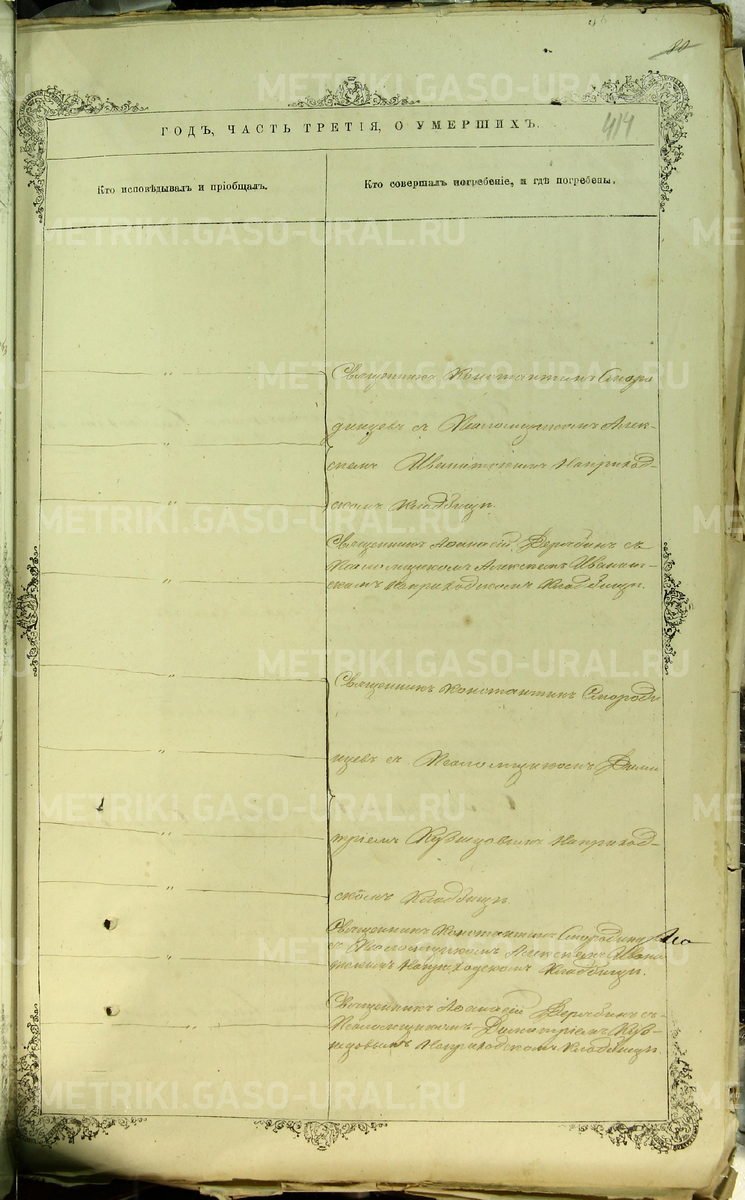 414
ГОДЪ, ЧАСТЬ ТРЕТІЯ, О УМЕРШИХЪ.
Кто исповѣдывалъ и пріобщалъ.
Кто совершалъ погребеніе, и гдѣ погребены.
Священникъ Константинъ Сморо
динцевъ съ Псаломщикомъ Алек-
сѣемъ Наприход-
скомъ Кладбищѣ.
Священникъ Аѳанасій Дерябинъ съ
Псаломщикомъ Алексѣемъ
скимъ Наприходскомъ Кладбищѣ.
Священникъ Константинъ Смород
нцевъ съ Псаломщикомъ Дими
тріемъ Наприход-
скомъ Кладбищѣ
Священникъ Константинъ
съ Псаломщикомъ Алексѣемъ
Наприходскомъ Кладбищѣ.
Священникъ Аѳанасій Дерябинъ съ
Псаломщикомъ Димитріемъ
Наприходскомъ Кладбищѣ.
METRIKI.GASO-URAL.RU